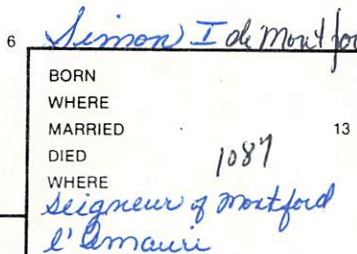 6 Simon I de Montfor
BORN
WHERE
MARRIED 13
DIED 1087
WHERE
Seigneur of Montford
l'Amauri